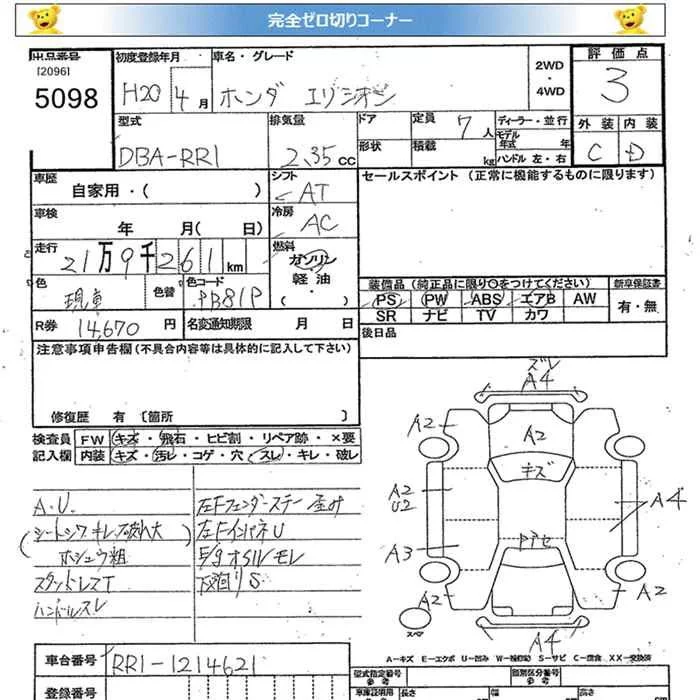 完全ゼロ切りコーナー
出品番号 [2096] 5098
初度登録年月 H20 4月
車名・グレード ホンダ エリシオン
2WD ・ 4WD
評価点 3
外装 C 内装 D
型式 DBA-RR1
排気量 2.35 CC
ドア 形状
定員 7人
積載 kg
ディーラー・並行
モデル年式 年
ハンドル 左・右
車歴 自家用・( )
シフト AT
セールスポイント (正常に機能するものに限ります)
車検 年 月( 日)
冷房 AC
走行 21万9千261km
燃料 ガソリン 軽油 ・( )
色 現車 色替 色コード PB81P
装備品 (純正品に限り○をつけてください)
新車保証書
PS PW ABS エアB AW
有・無
SR ナビ TV カワ
R券 14,670 円
名変通知期限 月 日
後日品
注意事項申告欄 (不具合内容等は具体的に記入して下さい)
修復歴 有 〔箇所 〕
検査員 記入欄
FW キズ・飛石・ヒビ割・リペア跡・×要
内装 キズ・汚レ・コゲ・穴・スレ・キレ・破レ
A.U.
(シートシワ キレ 破れ大
ホシュウ粗
スタッドレスT
ハンドルスレ
左Fフェンダーステー歪み
左FインパネU
E/gオイルモレ
下廻りS
ズレ
A4
A2
A2
キズ
A2
U2
A4
A3
A2
A2
A4
スペア
A－キズ E－エクボ U－凹み W－補修跡 S－サビ C－腐食 XX－交換済
車台番号 RR1-1214621
登録番号
型式指定番号 参考
類別区分番号 参考
車庫証明用 参考
長さ cm 幅 cm 高さ cm